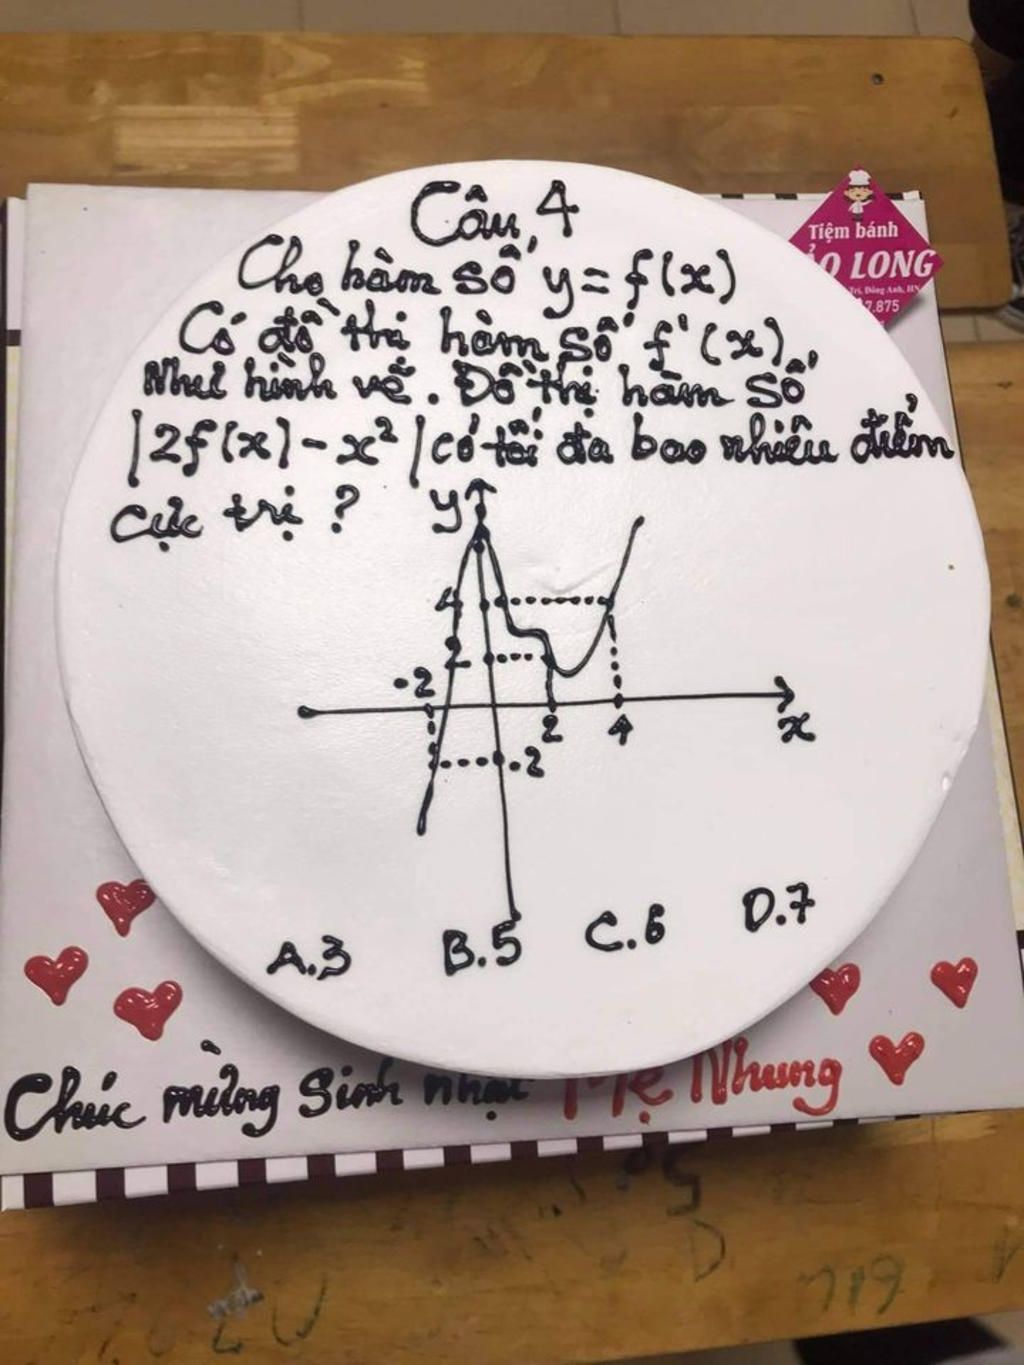 Câu 4
Cho hàm số y = f(x)
Có đồ thị hàm số f'(x)
Như hình vẽ. Đồ thị hàm số
|2f(x) - x² | có tối đa bao nhiêu điểm
cực trị ?
y
4
2
-2
2
4
x
-2
A.3
B.5
C.6
D.7
Tiệm bánh
ẢO LONG
Trì, Đông Anh, HN
7.875
Chúc mừng Sinh nhật Mẹ Nhung